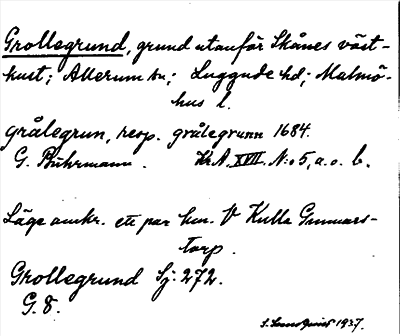 Grollegrund, grund utanför Skånes väst-
kust; Allerum sn; Luggude hd; Malmö-
hus l.
grålegrun, resp. grålegrunn 1684.
G. Buhrmann. Kr.A. XVII. N:o 5, a. o. b.
Läge omkr. ett par km. V Kulla Gunnars-
torp.
Grollegrund Sj. 272.
G. 8.
1927.